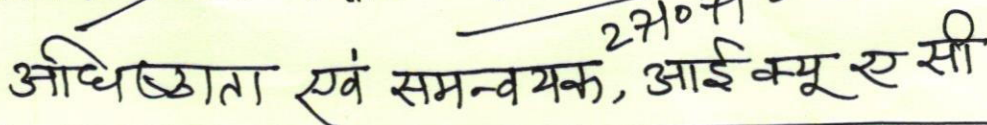 अधिष्ठाता एवं समन्वयक, आई क्यू ए सी